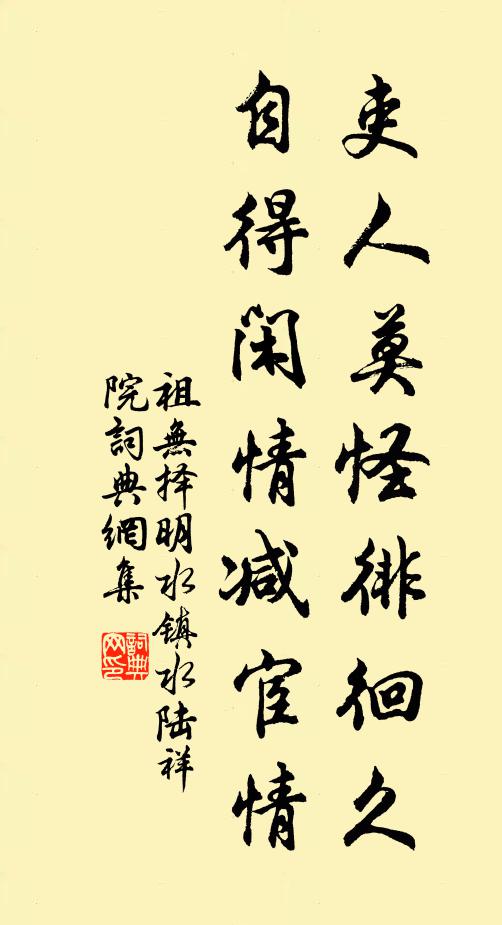 吏人莫怪徘徊久
自得闲情减宦情
祖無择明水镇水陆祥
院詞典網集
詞典網印